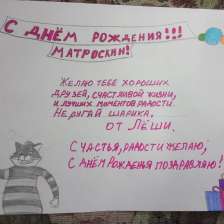 С ДНЁМ РОЖДЕНИЯ!!!
МАТРОСКИН!
ЖЕЛАЮ ТЕБЕ ХОРОШИХ
ДРУЗЕЙ, СЧАСТЛИВОЙ ЖИЗНИ,
И ЛУЧШИХ МОМЕНТОВ РАДОСТИ.
НЕ РУГАЙ ШАРИКА.
ОТ ЛЁШИ.
СЧАСТЬЯ, РАДОСТИ ЖЕЛАЮ,
С ДНЁМ РОЖДЕНЬЯ ПОЗДРАВЛЯЮ!